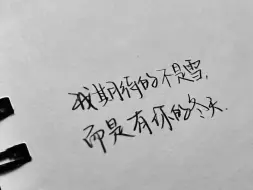 我期待的不是雪,
而是有你的冬天.